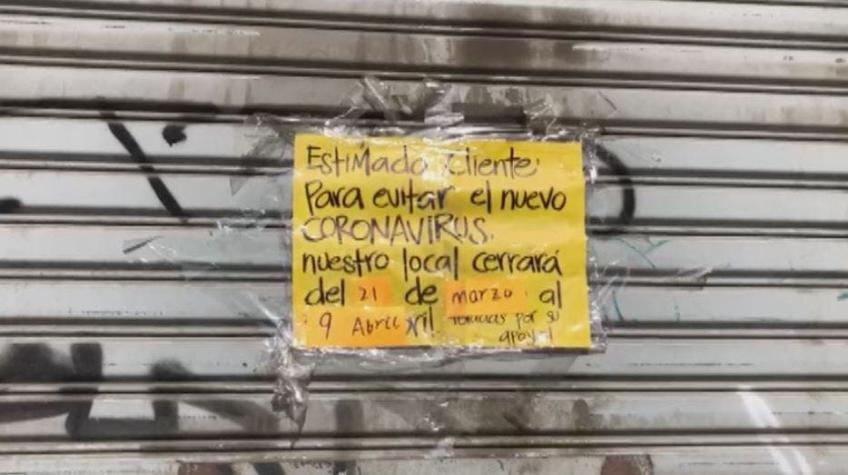 Estimado cliente:
Para evitar el nuevo
CORONAVIRUS.
nuestro local cerrará
del 21 de marzo al
9 Abril por su
apoyo!